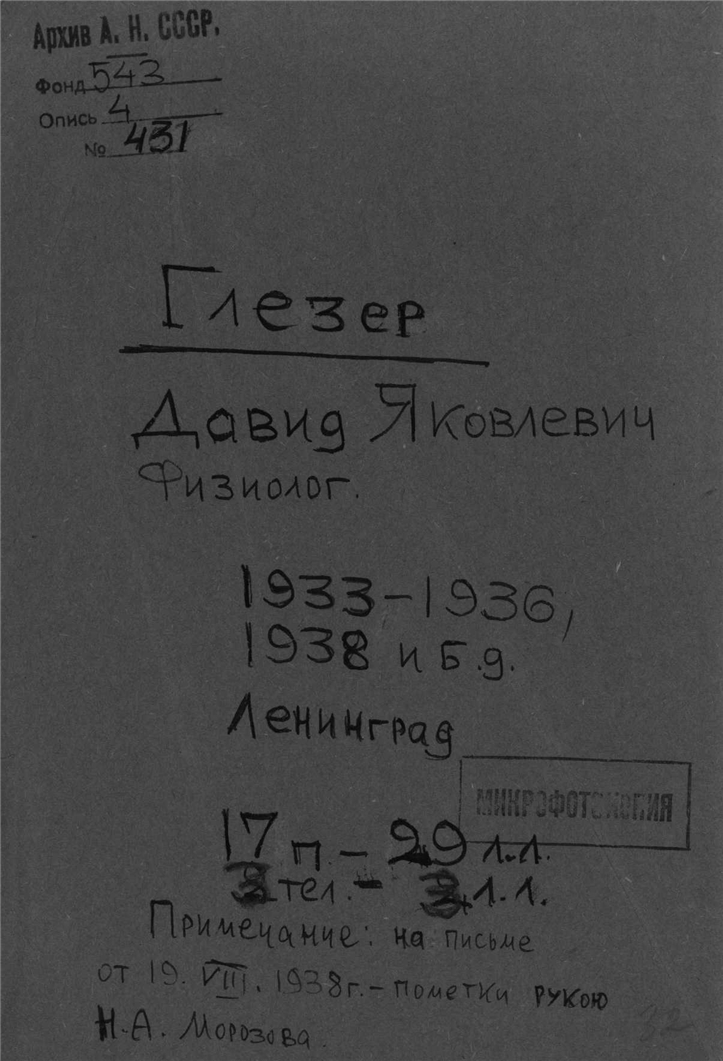 Архив А. Н. СССР.
Фонд 543
Опись 4
№ 431
Глезер
Давид Яковлевич
Физиолог.
1933-1936,
1938 и Б.д.
Ленинград
МИКРОФОТОКОПИЯ
17 п. - 29 л.л.
3 тел. - 3 л.л.
Примечание: на письме
от 19. VIII. 1938г. - пометки рукою
Н.А. Морозова.
32